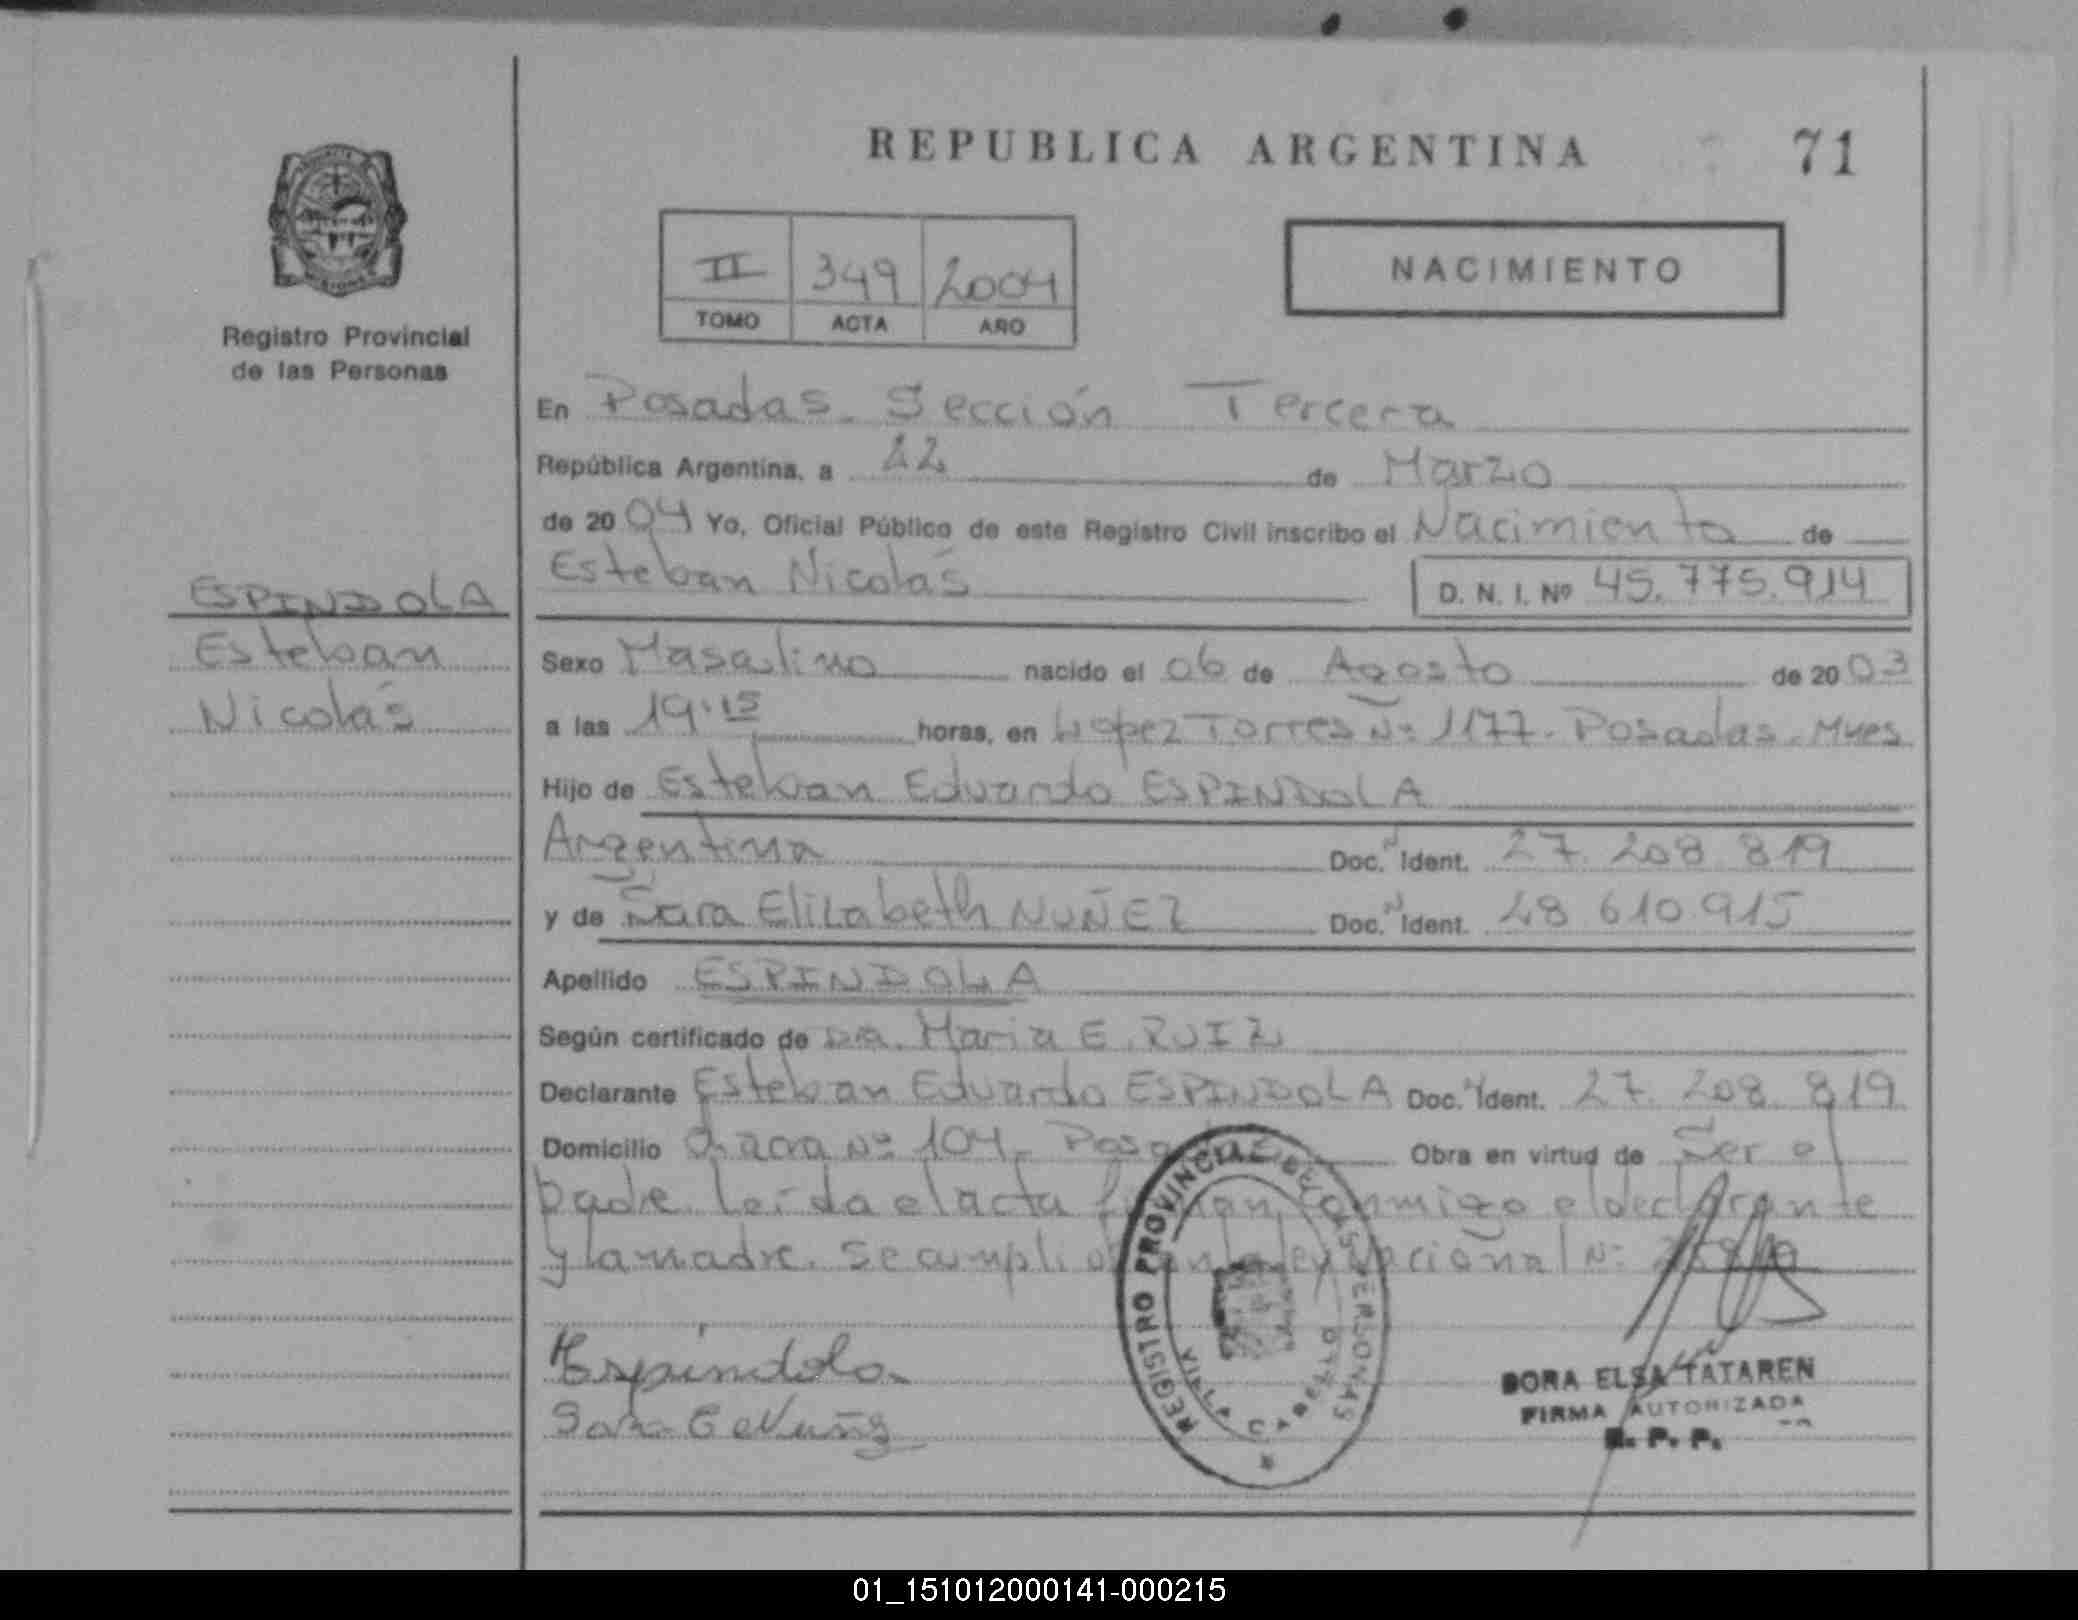 REPUBLICA ARGENTINA
71
II 349 2004
TOMO ACTA AÑO
NACIMIENTO
Registro Provincial
de las Personas
En Posadas. Sección Tercera
República Argentina, a 22 de Marzo
de 2004 Yo, Oficial Público de este Registro Civil inscribo el Nacimiento de
Esteban Nicolás
D. N. I. Nº 45.775.914
ESPINDOLA
Esteban
Nicolás
Sexo Masculino nacido el 06 de Agosto de 2003
a las 19.15 horas, en López Torres Nº 1177. Posadas. Mnes
Hijo de Esteban Eduardo ESPINDOLA
Argentina Doc. N Ident. 27.208.819
y de Sara Elizabeth NUÑEZ Doc. N Ident. 28.610.915
Apellido ESPINDOLA
Según certificado de Dra. Maria E. RUIZ
Declarante Esteban Eduardo ESPINDOLA Doc. N Ident. 27.208.819
Domicilio Chacra Nº 104. Posadas Obra en virtud de Ser el
padre. Leída el acta firman conmigo el declarante
y la madre. Se cumplió con la ley Nacional Nº
Espindola
Sara E Nuñez
REGISTRO PROVINCIAL DE LAS PERSONAS
VILLA CABELLO
DORA ELSA TATAREN
FIRMA AUTORIZADA
R. P. P.
01_151012000141-000215